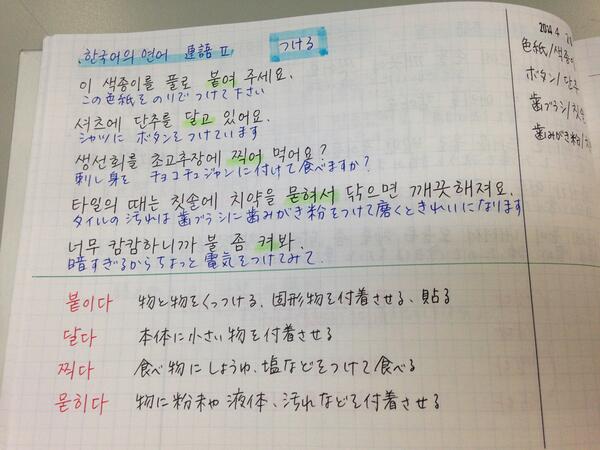 한국어의 연어 連語 Ⅱ つける
이 색종이를 풀로 붙여 주세요.
この色紙をのりでつけて下さい
셔츠에 단추를 달고 있어요.
シャツに ボタンをつけています
생선회를 초고추장에 찍어 먹어요?
刺し身を チョコチュジャンに付けて食べますか?
타일의 때는 칫솔에 치약을 묻혀서 닦으면 깨끗해져요.
タイルの汚れは歯ブラシに歯みがき粉をつけて磨くときれいになります
너무 캄캄하니까 불 좀 켜봐.
暗すぎるからちょっと電気をつけてみて.
붙이다 物と物をくっつける、固形物を付着させる、貼る
달다 本体に小さい物を付着させる
찍다 食べ物にしょうゆ、塩などをつけて食べる
묻히다 物に粉末や液体、汚れなどを付着させる
2014.4
色紙/색종이
ボタン/단추
歯ブラシ/칫솔
歯みがき粉/